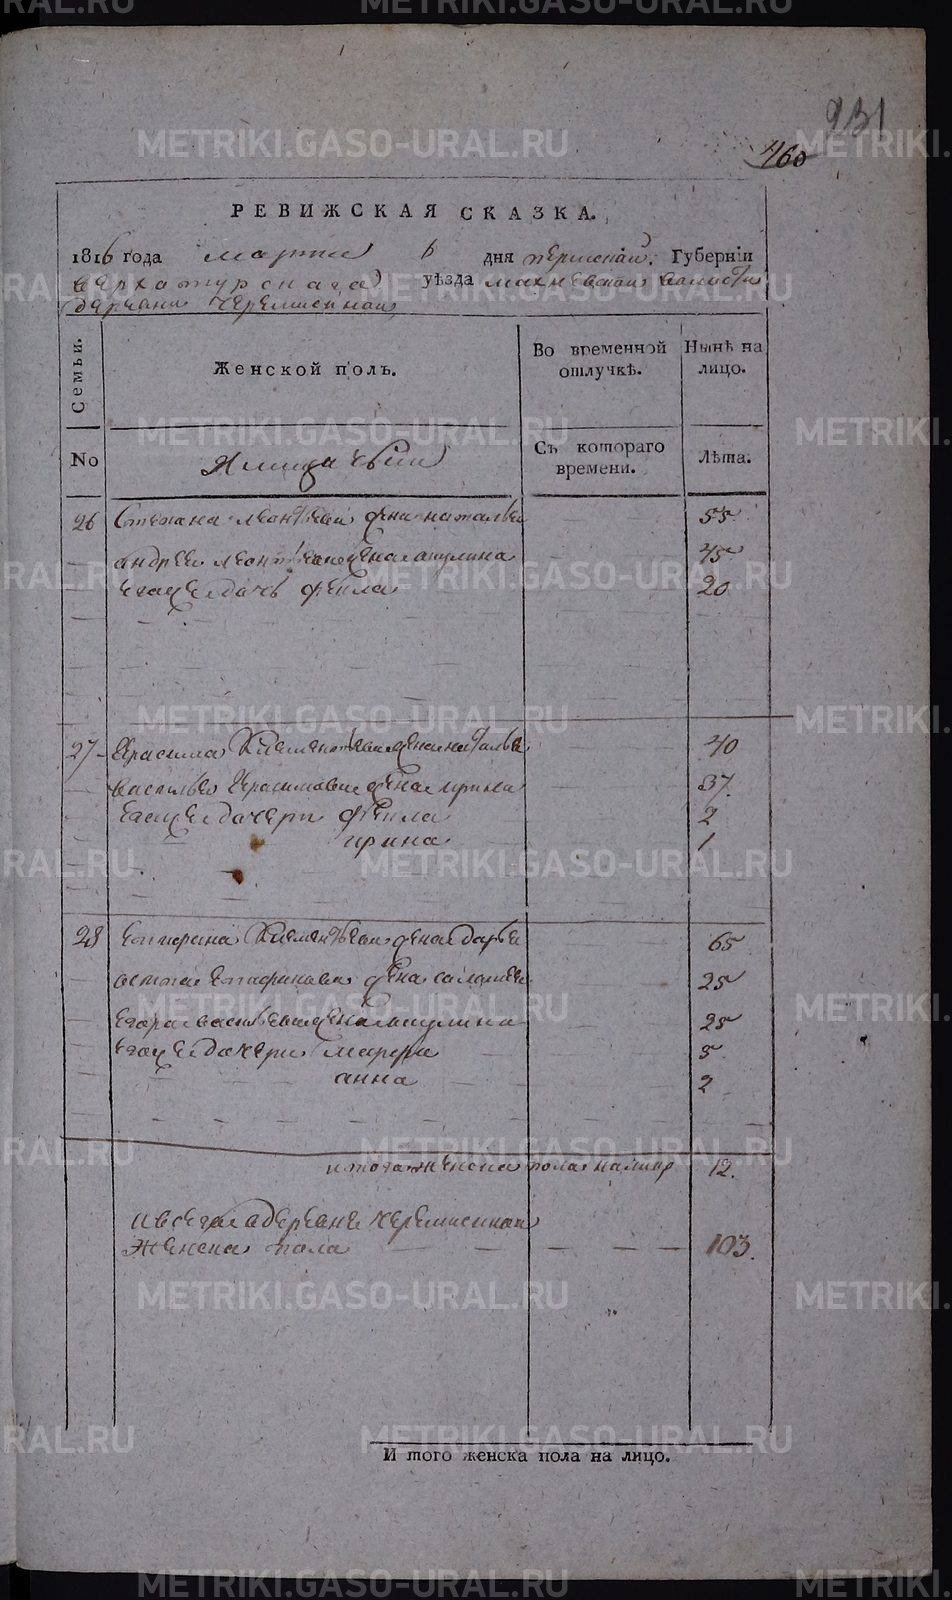 931
460
РЕВИЖСКАЯ СКАЗКА.
1816 года марта 6 дня пермской Губерніи
верхотурскаго уѣзда махневской волости
деревни Черемисиной
Семьи.
Женской полъ.
Во временной отлучкѣ.
Нынѣ на лицо.
No
Съ котораго времени.
Лѣта.
26 Степана леонтьева жена наталья 55
андрея леонтьева жена акулина 45
его же дочь фекла 20
27 Герасима Клементьева жена наталья 40
василья Герасимова жена ирина 37
его же дочери фекла 2
ирина 1
28 Климентьева жена дарья 65
жена соломея 25
егора васильева жена акулина 25
его же дочери марфа 5
анна 2
итого женска пола налицо 12.
и всего в деревне черемисиной
женска пола 103.
И того женска пола на лицо.
METRIKI.GASO-URAL.RU